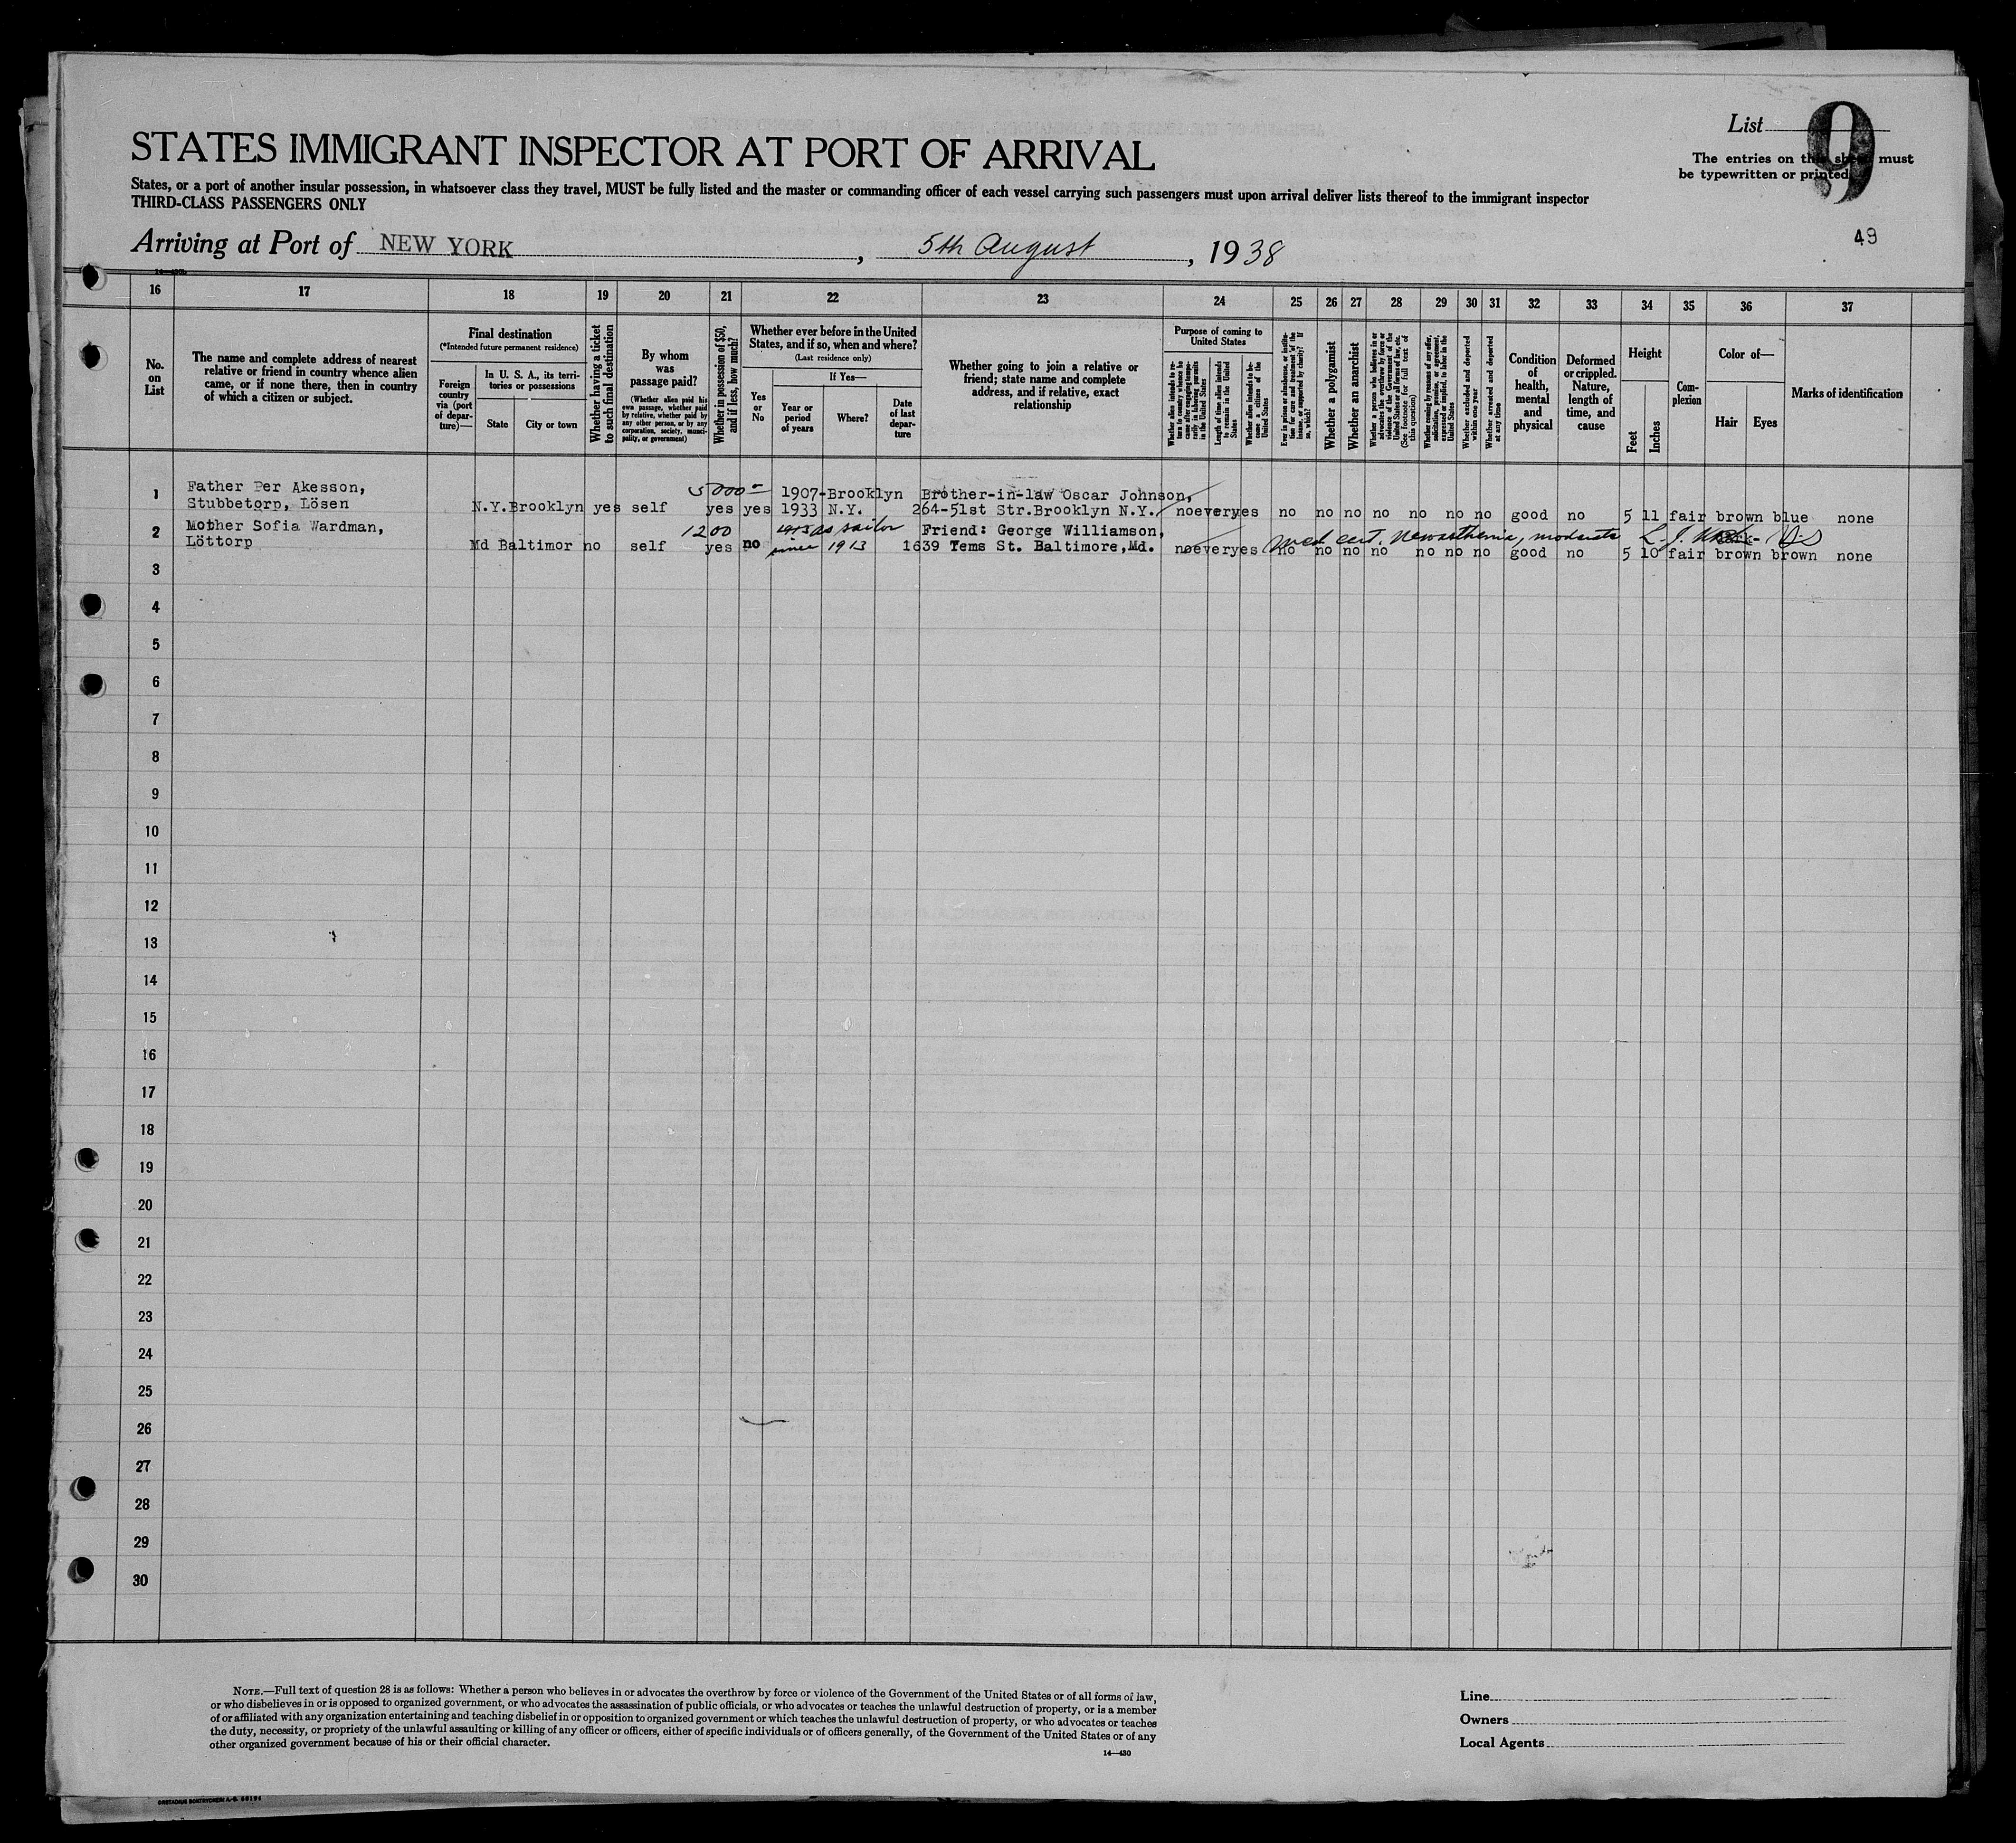 List 9
The entries on this sheet must
be typewritten or printed
STATES IMMIGRANT INSPECTOR AT PORT OF ARRIVAL
States, or a port of another insular possession, in whatsoever class they travel, MUST be fully listed and the master or commanding officer of each vessel carrying such passengers must upon arrival deliver lists thereof to the immigrant inspector
THIRD-CLASS PASSENGERS ONLY
Arriving at Port of NEW YORK, 5th August, 1938
49
16 17 18 19 20 21 22 23 24 25 26 27 28 29 30 31 32 33 34 35 36 37
No. on List
The name and complete address of nearest
relative or friend in country whence alien
came, or if none there, then in country
of which a citizen or subject.
Final destination
(*Intended future permanent residence)
Foreign country via (port of departure)—
In U. S. A., its territories or possessions
State
City or town
Whether having a ticket to such final destination
By whom was passage paid?
(Whether alien paid his own passage, whether paid by relative, whether paid by any other person, or by any corporation, society, municipality, or government)
Whether in possession of $50, and if less, how much?
Whether ever before in the United
States, and if so, when and where?
(Last residence only)
Yes or No
If Yes—
Year or period of years
Where?
Date of last departure
Whether going to join a relative or
friend; state name and complete
address, and if relative, exact
relationship
Purpose of coming to United States
Whether alien intends to return to country whence he came after engaging temporarily in laboring pursuits in the United States
Length of time alien intends to remain in the United States
Whether alien intends to become a citizen of the United States
Ever in prison or almshouse, or institution for care and treatment of the insane, or supported by charity? If so, which?
Whether a polygamist
Whether an anarchist
Whether a person who believes in or advocates the overthrow by force or violence of the Government of the United States or all forms of law, etc. (See footnote for full text of this question)
Whether coming by reasons of any offer, solicitation, promise, or agreement, expressed or implied, to labor in the United States
Whether excluded and deported within one year
Whether arrested and deported at any time
Condition of health, mental and physical
Deformed or crippled. Nature, length of time, and cause
Height
Feet
Inches
Complexion
Color of—
Hair
Eyes
Marks of identification
1 Father Per Akesson,
Stubbetorp, Lösen
N.Y. Brooklyn yes self 5000 yes yes 1907-1933 Brooklyn N.Y.
Brother-in-law Oscar Johnson,
264-51st Str. Brooklyn N.Y.
no ever yes no no no no no no no good no 5 11 fair brown blue none
2 Mother Sofia Wardman,
Löttorp
Md Baltimor no self 1200 yes no
1913 as sailor
since 1913
Friend: George Williamson,
1639 Tems St. Baltimore, Md.
no ever yes no no no no no no no good no 5 10 fair brown brown none
med cert. neurasthenia, moderate
3
4
5
6
7
8
9
10
11
12
13
14
15
16
17
18
19
20
21
22
23
24
25
26
27
28
29
30
NOTE.—Full text of question 28 is as follows: Whether a person who believes in or advocates the overthrow by force or violence of the Government of the United States or of all forms of law,
or who disbelieves in or is opposed to organized government, or who advocates the assassination of public officials, or who advocates or teaches the unlawful destruction of property, or is a member
of or affiliated with any organization entertaining and teaching disbelief in or opposition to organized government or which teaches the unlawful destruction of property, or who advocates or teaches
the duty, necessity, or propriety of the unlawful assaulting or killing of any officer or officers, either of specific individuals or of officers generally, of the Government of the United States or of any
other organized government because of his or their official character.
14—430
Line
Owners
Local Agents